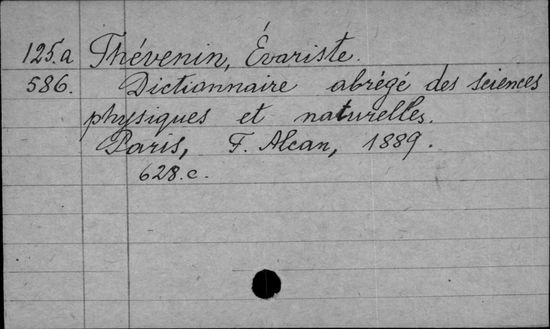 125.a Thévenin, Évariste.
586. Dictionnaire abrégé des sciences
physiques et naturelles.
Paris, F. Alcan, 1889.
628.c.